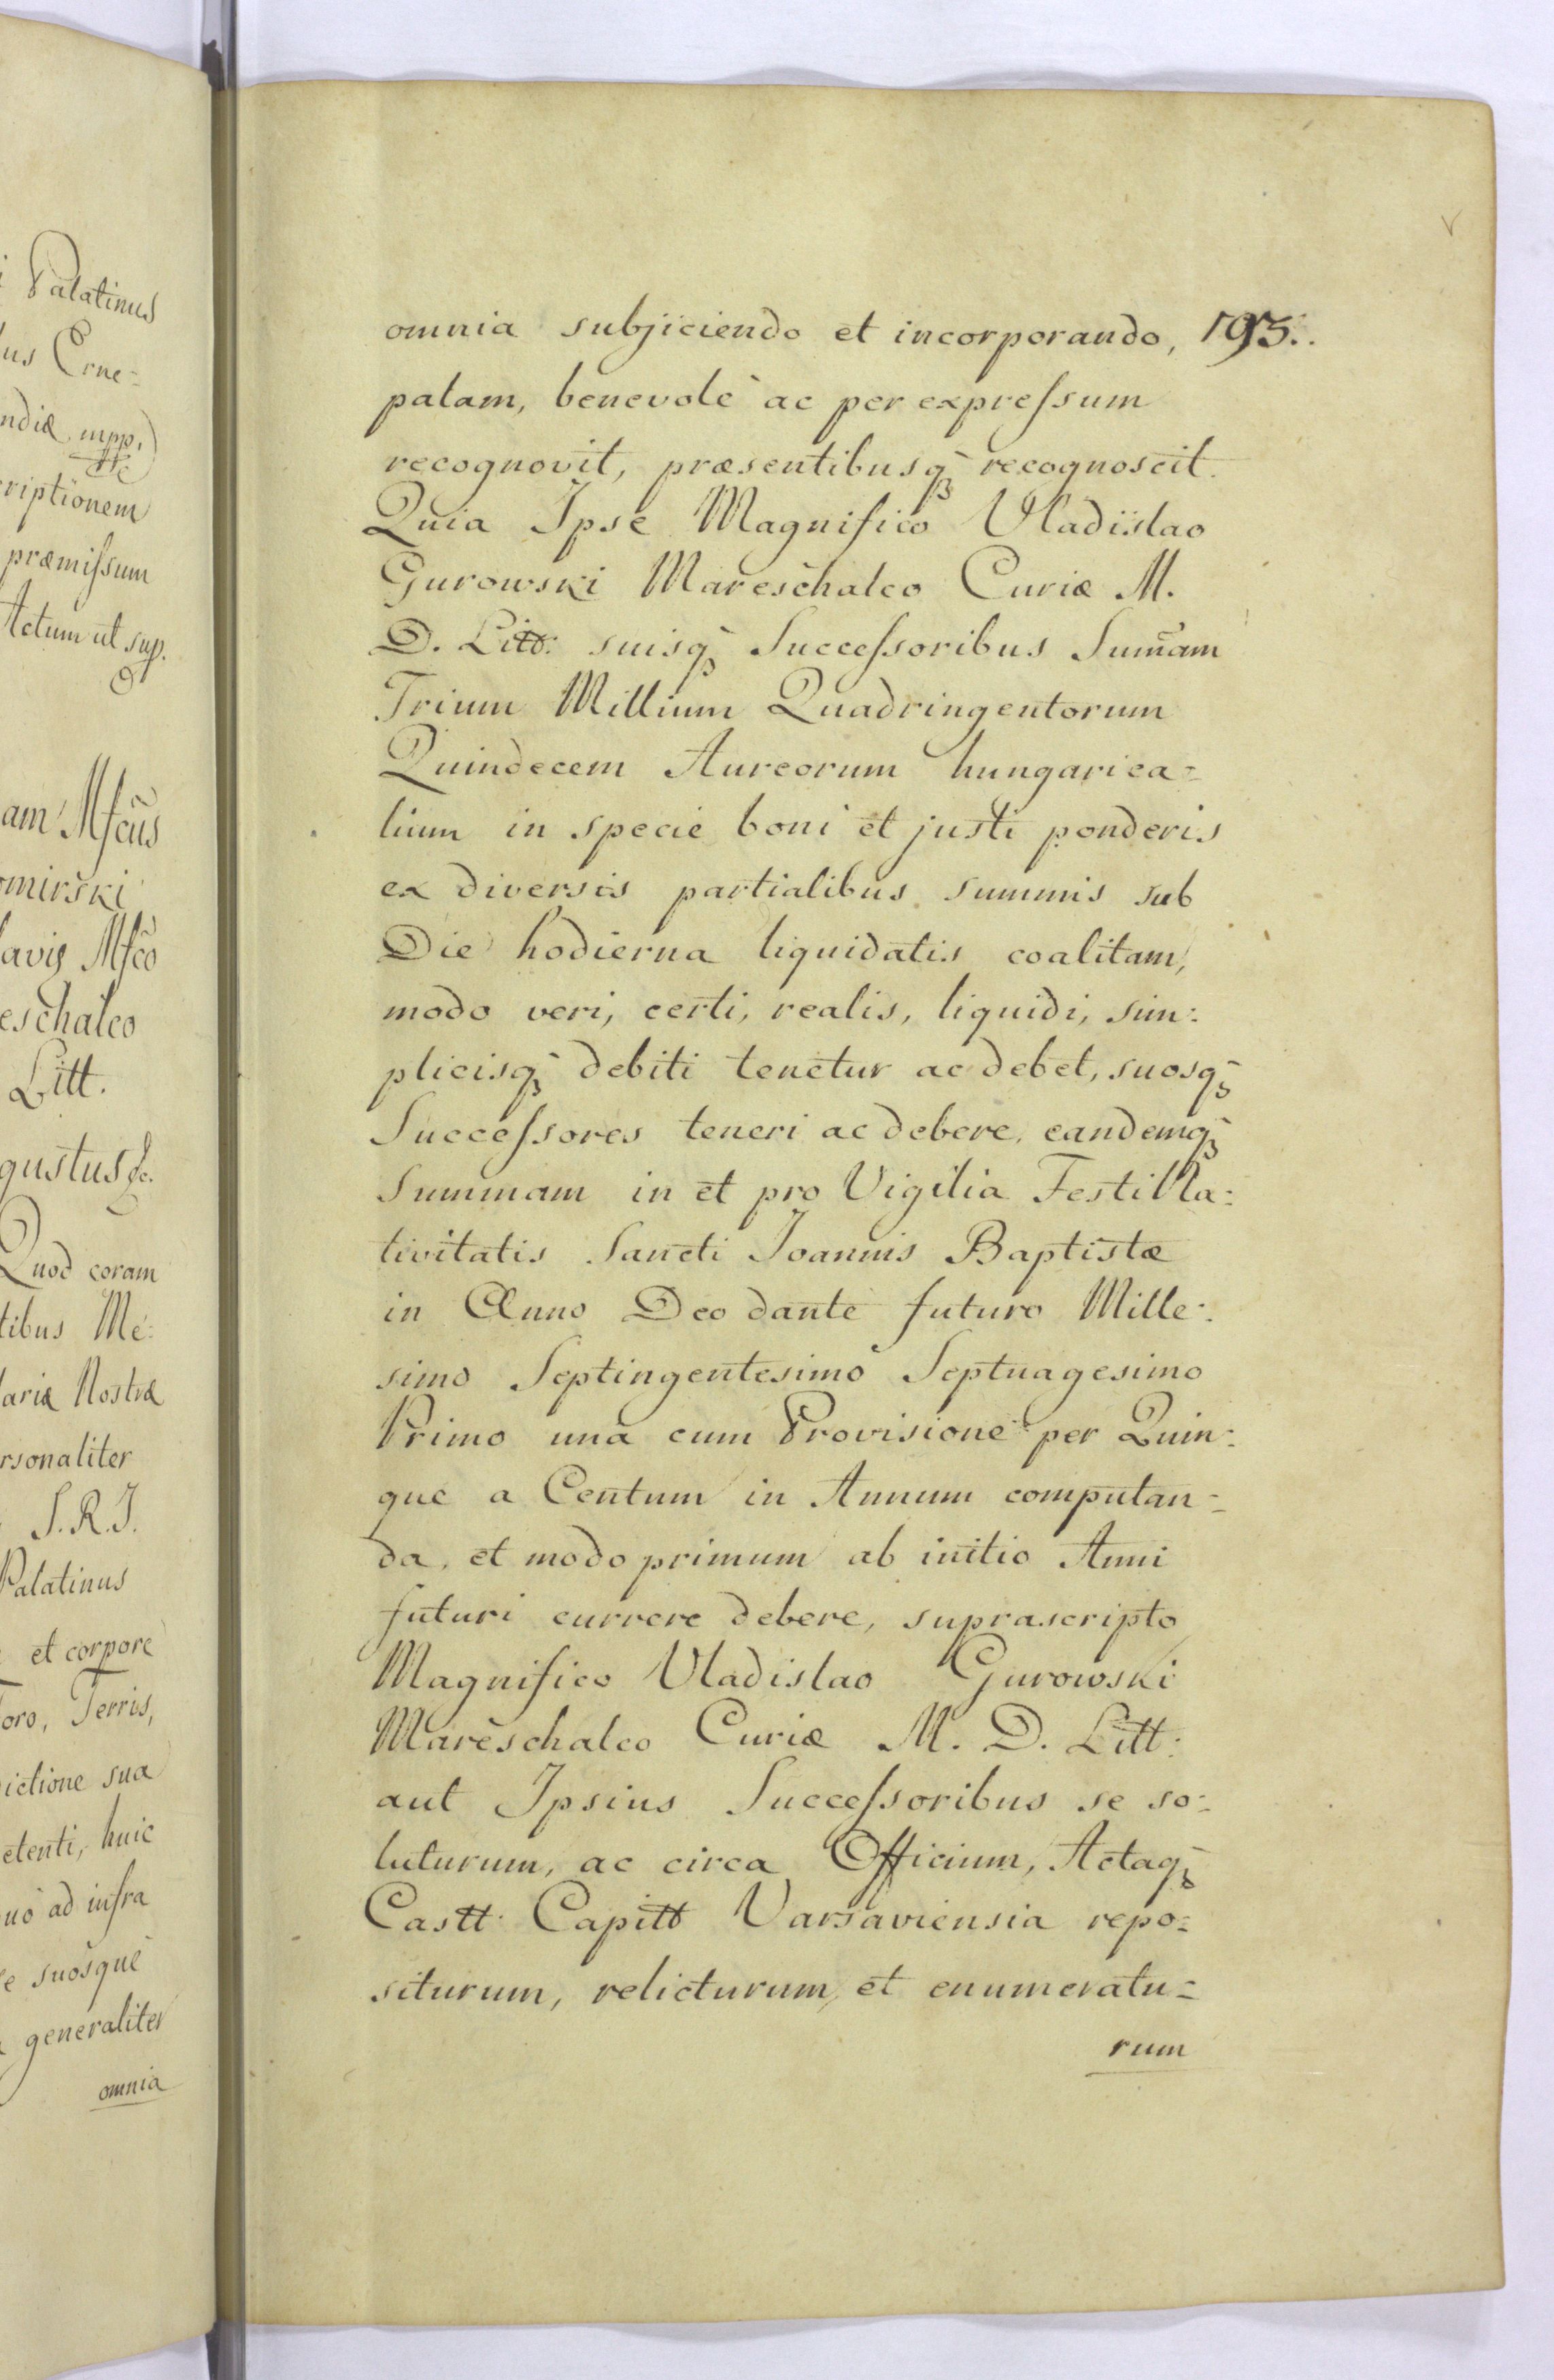 i Palatinus
us Crne=
ndiæ mpp.
riptionem
præmiſsum
Actum ut sup.
am Mfcus
omirski
avis Mfco
eschalco
Litt.
gustus &c.
Quod coram
tibus Me=
lariæ Nostræ
rsonaliter
S. R. J.
Palatinus
et corpore
Foro, Terris,
ictione sua
etenti, huic
uò ad infra
e suosque
generaliter
omnia
omnia subjiciendo et incorporando, 193.
palam, benevole ac per expreſsum
recognovit, præsentibusq̃ recognoscit.
Quia Ipse Magnifico Vladislao
Gurowski Mareschalco Curiæ M.
D. Litt: suisq̃ Succeſsoribus Sum̃am
Trium Millium Quadringentorum
Quindecem Aureorum hungarica=
lium in specie boni et justi ponderis
ex diversis partialibus summis sub
Die hodierna liquidatis coalitam,
modo veri, certi, realis, liquidi, sim=
plicisq̃ debiti tenetur ac debet, suosq̃
Succeſsores teneri ac debere, eandemq̃
Summam in et pro Vigilia Festi Na=
tivitatis Sancti Joannis Baptistæ
in Anno Deo dante futuro Mille=
simo Septingentesimo Septuagesimo
Primo una cum Provisione per Quin=
que a Centum in Annum computan=
da, et modo primum ab initio Anni
futuri currere debere, suprascripto
Magnifico Vladislao Gurowski
Mareschalco Curiæ M. D. Litt:
aut Ipsius Succeſsoribus se so=
luturum, ac circa Officium, Actaq̃
Castt: Capitt Varsaviensia repo=
siturum, relicturum, et enumeratu=
rum